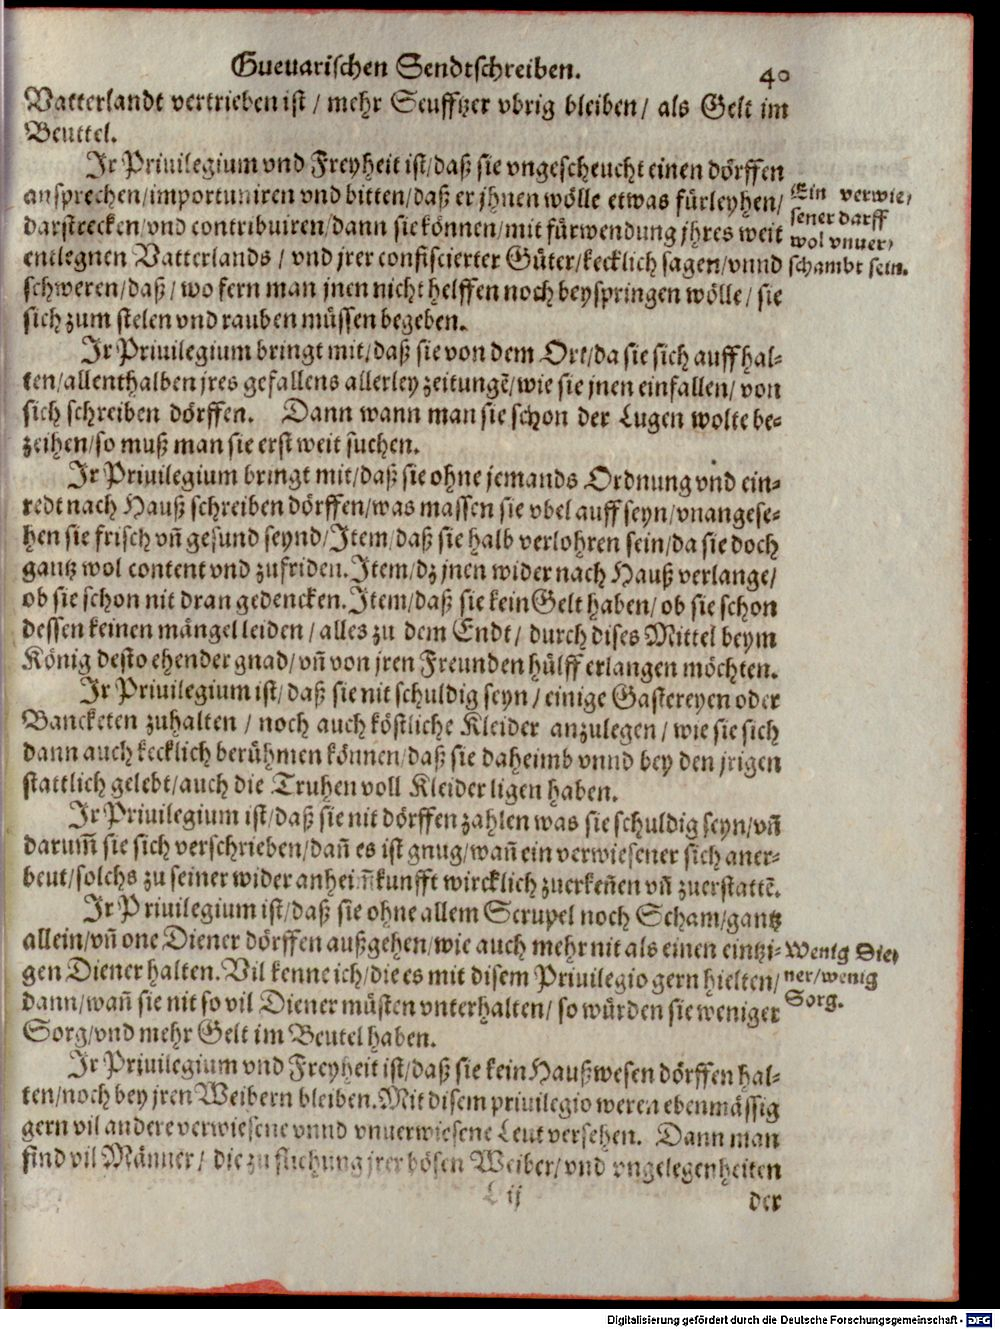 Guevarischen Sendtschreiben. 40
Vatterlandt vertrieben ist / mehr Seufftzer vbrig bleiben / als Gelt im
Beuttel.
Jr Priuilegium vnd Freyheit ist/daß sie vngescheucht einen dörffen
ansprechen/importuniren vnd bitten/daß er jhnen wölle etwas fürleyhen/
darstrecken/vnd contribuiren/dann sie können/mit fürwendung jhres weit
entlegnen Vatterlands / vnd jrer confiscierter Güter/kecklich sagen/vnnd
schweren/daß/wo fern man jnen nicht helffen noch beyspringen wölle/sie
sich zum stelen vnd rauben müssen begeben.
Ein verwie-
sener darff
wol vnuer-
schambt sein.
Jr Priuilegium bringt mit/daß sie von dem Ort/da sie sich auffhal-
ten/allenthalben jres gefallens allerley zeitungē/wie sie jnen einfallen/von
sich schreiben dörffen. Dann wann man sie schon der Lugen wolte be-
zeihen/so muß man sie erst weit suchen.
Jr Priuilegium bringt mit/daß sie ohne jemands Ordnung vnd ein-
redt nach Hauß schreiben dörffen/was massen sie vbel auff seyn/vnangese-
hen sie frisch vñ gesund seynd/Item/daß sie halb verlohren sein/da sie doch
gantz wol content vnd zufriden. Item/dz jnen wider nach Hauß verlange/
ob sie schon nit dran gedencken. Item/daß sie kein Gelt haben/ob sie schon
dessen keinen mängel leiden / alles zu dem Endt / durch dises Mittel beym
König desto ehender gnad/vñ von jren Freunden hülff erlangen möchten.
Jr Priuilegium ist/daß sie nit schuldig seyn / einige Gastereyen oder
Bancketen zuhalten / noch auch köstliche Kleider anzulegen / wie sie sich
dann auch kecklich berühmen können/daß sie daheimb vnnd bey den jrigen
stattlich gelebt/auch die Truhen voll Kleider ligen haben.
Jr Priuilegium ist/daß sie nit dörffen zahlen was sie schuldig seyn/vñ
darum̃ sie sich verschrieben/dañ es ist gnug/wañ ein verwiesener sich aner-
beut/solchs zu seiner wider anheim̃kunfft wircklich zuerkeñen vñ zuerstattē.
Jr Priuilegium ist/daß sie ohne allem Scrupel noch Scham/gantz
allein/vñ one Diener dörffen außgehen/wie auch mehr nit als einen eintzi-
gen Diener halten. Vil kenne ich/die es mit disem Priuilegio gern hielten/
dann/wañ sie nit so vil Diener müsten vnterhalten/so würden sie weniger
Sorg/vnd mehr Gelt im Beutel haben.
Wenig Die-
ner/wenig
Sorg.
Jr Priuilegium vnd Freyheit ist/daß sie kein Haußwesen dörffen hal-
ten/noch bey jren Weibern bleiben. Mit disem priuilegio weren ebenmässig
gern vil andere verwiesene vnnd vnuerwiesene Leut versehen. Dann man
find vil Männer / die zu fliehung jrer bösen Weiber/vnd vngelegenheiten
L ij der
Digitalisierung gefördert durch die Deutsche Forschungsgemeinschaft - DFG